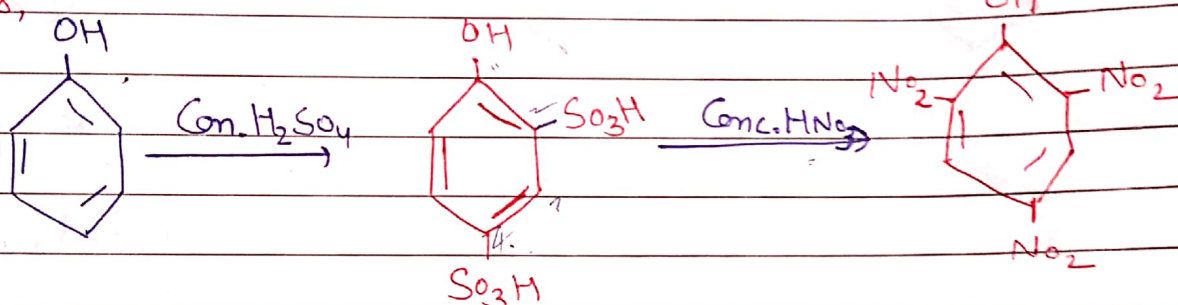 OH
Con. H2SO4
OH
SO3H
4.
SO3H
Conc. HNO3
OH
NO2
NO2
NO2